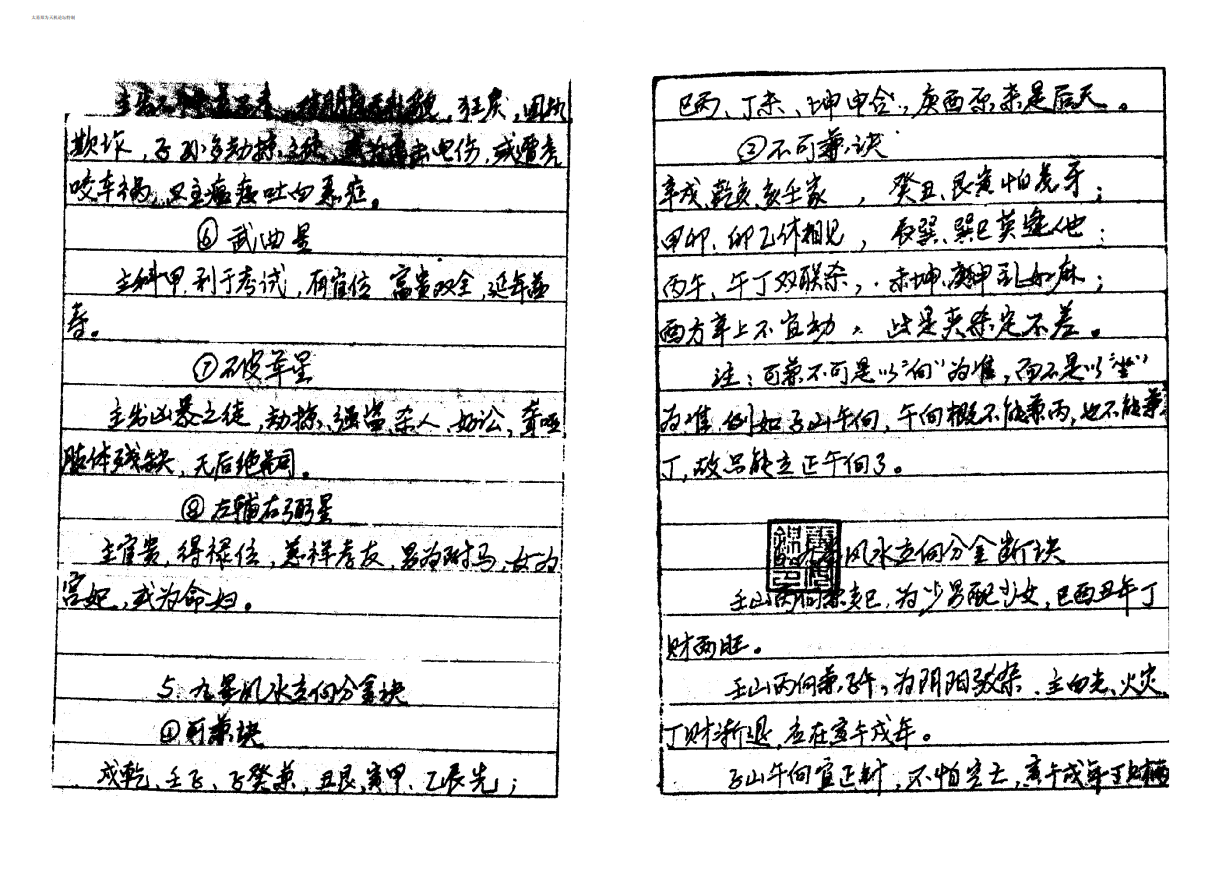 狂疾，
欺诈，子孙多劫掠之徒，电伤，或
咬车祸，又主瘟疫吐血系症。
⑥ 武曲星
主科甲，利于考试，有官位，富贵双全，延年益
寿。
⑦ 破军星
主出凶暴之徒，劫掠、强盗、杀人、好讼，聋哑
肢体残缺，无后绝嗣。
⑧ 左辅右弼星
主官贵，得禄位，慈祥孝友，男为附马，女为
宫妃，或为命妇。
5. 九星风水立向分金诀
①可兼诀
戌乾、壬子、子癸兼，丑艮、寅甲、乙辰先；
巳丙、丁未、坤申合，庚酉原来是后天。
②不可兼诀
辛戌、乾亥、亥壬家，癸丑、艮寅怕虎牙；
甲卯、卯乙休相见，辰巽、巽巳莫逢他；
丙午、午丁双联杀，未坤、庚申乱如麻；
酉方辛上不宜动，此是夹杂定不差。
注：可兼不可是以“向”为准，而不是以“坐”
为准，例如子山午向，午向概不能兼丙，也不能兼
丁，故只能立正午向了。
风水立向分金断诀
壬山丙向兼亥巳，为少男配少女，巳酉丑年丁
财两旺。
壬山丙向兼子午，为阴阳驳杂，主血光、火灾，
丁财渐退，应在寅午戌年。
子山午向宜正针，不怕空亡，寅午戌年丁财